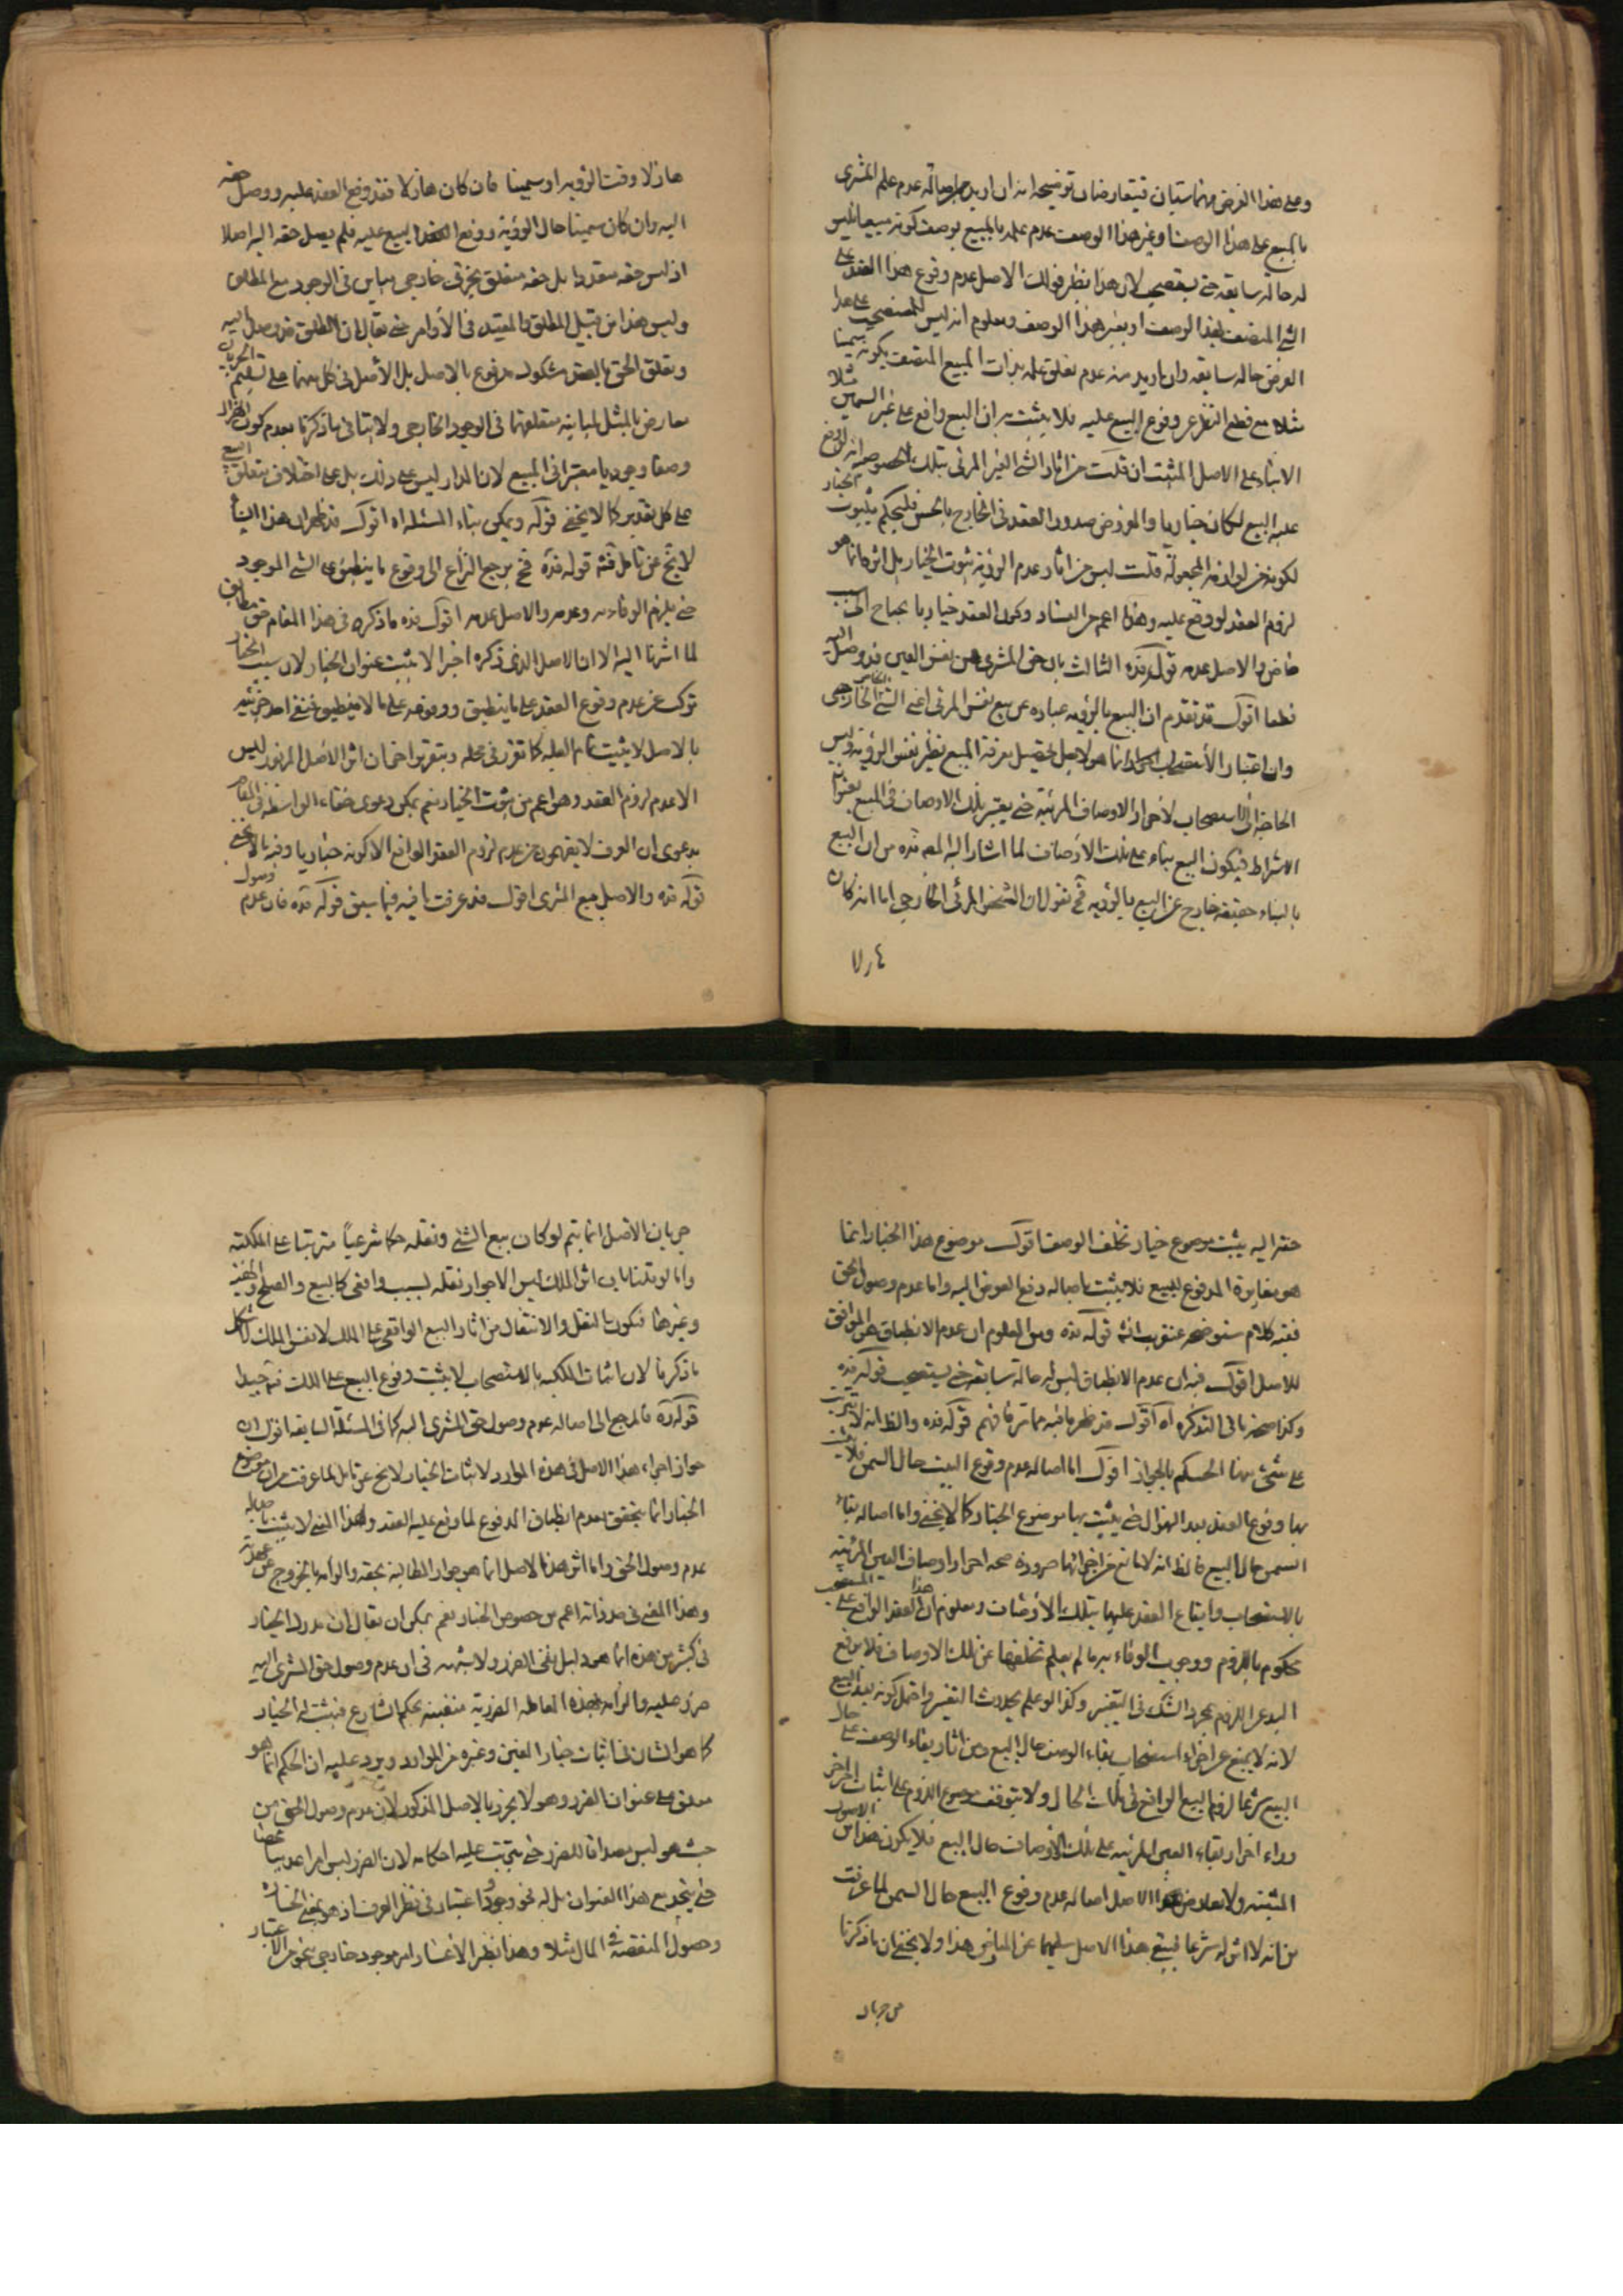 وعلى هذا الفرض متباينان فيتعارضان توضيحه انه ان اريد باصالة عدم علم المشترى
بالمبيع على هذا الوصف او غير هذا الوصف عدم علمه بالمبيع بوصف كونه مبيعا فليس
له حالة سابقة حتى يستصحب لان هذا نظير قولك الاصل عدم وقوع هذا العقد على
الشئ المتصف بهذا الوصف او بغير هذا الوصف ومعلوم انه ليس للمستصحب على هذا
الفرض حالة سابقه وان اريد منه عدم تعلق علمه بذات المبيع المتصف بكونه سمينا
مثلا مع قطع النظر عن وقوع البيع عليه فلا يثبت به ان البيع واقع على غير السمين مثلا
الا بناء على الاصل المثبت ان قلت من اثار الشئ الغير المرئى بتلك الخصوصية انه لو وقع
عليه البيع لكان خياريا والمفروض صدور العقد فى الخارج بالحس فليحكم بثبوت الخيار
لكونه من لوازمه المجعولة قلت ليس من اثار عدم الرؤية ثبوت الخيار بل اثره انما هو
لزوم العقد لو وقع عليه وهذا اعم من الفساد وكون العقد خياريا يحتاج الى سبب
خاص والاصل عدمه قوله قده الثالث بان حق المشترى من نفس العين قد وصل اليه
قطعا اقول قد تقدم ان البيع بالرؤيه عباره عن بيع نفس المرئى اعنى الشئ الخاص الخارجى
وان اعتبار الاستصحاب انما هو لاجل تحصيل معرفة المبيع نظير نفس الرؤية وليس
الحاجة الى الاستصحاب لاحراز الاوصاف المرئية حتى يعتبر تلك الاوصاف فى المبيع بعنوان
الاشتراط فيكون البيع بناء على تلك الاوصاف لما اشار اليه المص قده من ان البيع
بالبناء حقيقة خارج عن البيع بالرؤيه فح نقول ان الشخص المرئى الخارجى اما انه كان
هازلا وقت الرؤيه او سمينا فان كان هازلا فقد وقع العقد عليه ووصل حقه
اليه وان كان سمينا حال الرؤية ووقع العقد البيع عليه فلم يصل حقه اليه اصلا
اذ ليس حقه متعددا بل حقه متعلق بجزئى خارجى مباين فى الوجود مع المطلق
وليس هذا من قبيل المطلق والمقيد فى الأوامر حتى يقال ان المطلق قد وصل اليه
وتعلق الحق بالبعض مشكوك مدفوع بالاصل بل الأصل فى كل منهما على تسليم الجريان
معارض بالمثل لمباينة متعلقهما فى الوجود الخارجى ولا ينافى ما ذكرنا بعدم كون الهزال
وصفا وجوديا معتبرا فى المبيع لان المدار ليس على ذلك بل على اختلاف متعلق البيع
على كل تقدير كما لا يخفى قوله ويمكن بناء المسئلة اه اقول قد ظهر ان هذا البناء
لا يخ عن تامل فتم قوله قده فح يرجع النزاع الى وقوع ما ينطبق على الشئ الموجود
حتى يلزم الوفاء به وعدمه والاصل عدمه اقول قده ما ذكره فى هذا المقام حق مطابق
لما اشرنا اليه الا ان الاصل الذى ذكره اخيرا لا يثبت عنوان الخيار لان سبب الخيار
مركب من عدم وقوع العقد على ما ينطبق ووقوعه على ما لا ينطبق فنفى احد جزئيه
بالاصل لا يثبت تمام العلة كما تقرر فى محله وبتقرير اخر ان اثر الاصل المزبور ليس
الا عدم لزوم العقد وهو اعم من ثبوت الخيار نعم يمكن دعوى خفاء الواسطة فى المقام
بدعوى ان العرف لا يفهمون من عدم لزوم العقد الواقع الا كونه خياريا وفيه ما لا يخفى
قوله قده والاصل مع المشترى اقول قد عرفت ما فيه فيما سبق قوله قده فان عدم وصول
حقه اليه يثبت موضوع خيار تخلف الوصف اقول موضوع هذا الخيار انما
هو مغايرة المدفوع للمبيع فلا يثبت باصالة دفع العوض اليه واما عدم وصول الحق
ففيه كلام ستوضحه عنقريب انش قوله قده ومن المعلوم ان عدم الانطباق هو الموافق
للاصل اقول فيه ان عدم الانطباق ليس له حالة سابقة حتى يستصحب قوله قده
وكذا صحة باقى التذكره آه اقول قد ظهر ما فيه مما مر فافهم قوله قده والظ انه لا يترتب
على شئ منهما الحكم بالجواز اقول اما اصالة عدم وقوع البيع حال السمن فلا يثبت
بها وقوع العقد بعد الهزال حتى يثبت بها موضوع الخيار كما لا يخفى واما اصالة بقاء
السمن حال البيع فالظ انه لا مانع من اجرائها ضرورة صحه احراز اوصاف العين المرئية
بالاستصحاب وايقاع العقد عليها بتلك الأوصاف ومعلوم ان هذا العقد الواقع على المستصحب
محكوم باللزوم ووجوب الوفاء به ما لم يعلم تخلفها عن تلك الاوصاف فلا يرفع
اليد عن اللزوم بمجرد الشك فى التغيير وكذا لو علم بحدوث التغيير واحتمل كونه بعد البيع
لانه لا يمنع عن اجراء استصحاب بقاء الوصف حال البيع ومن اثار بقاء الوصف على حال
البيع شرعا لزوم البيع الواقع فى ذلك الحال ولا يتوقف موضوع اللزوم على اثبات امر اخر
وراء احراز بقاء العين المرئية على تلك الأوصاف حال البيع فلا يكون هذا من الاصول
المثبته ولا يعارض هذا الاصل اصالة عدم وقوع البيع حال السمن لما عرفت
من انه لا اثر له شرعا فيبقى هذا الاصل سليما عن المعارض هذا ولا يخفى ان ما ذكرنا
من جريان
جريان الأصل انما يتم لو كان بيع الشئ ونقله حكما شرعياً مترتبا على الملكية
واما لو قلنا بان اثر الملك ليس الا جواز نقله بسبب واقعى كالبيع والصلح والهبة
وغيرها فيكون النقل والانتقال من اثار البيع الواقعى على الملك لا نفس الملك لاشكل
ما ذكرنا لان اثبات الملكية بالاستصحاب لا يثبت وقوع البيع على الملك فتم جيدا
قوله قده فالمرجع الى اصالة عدم وصول حق المشترى اليه كما فى المسئلة السابقه اقول ان
جواز اجراء هذا الاصل فى هذه الموارد لاثبات الخيار لا يخ عن تامل لما عرفت من ان موضوع
الخيار انما يتحقق بعدم انطباق المدفوع لما وقع عليه العقد وهذا المعنى لا يثبت باصالة
عدم وصول الحق واما اثر هذا الاصل انما هو جواز المطالبة بحقه والزامه بالخروج عن عهدته
وهذا المعنى فى حد ذاته اعم من خصوص الخيار نعم يمكن ان يقال ان مدرك الخيار
فى كثير من هذه انما هو دليل نفى الضرر ولا شبهه فى ان عدم وصول حق المشترى اليه
ضرر عليه والزامه بهذه المعاملة الضررية منفية بحكم الشارع فيثبت له الخيار
كما هو الشان فى اثبات خيار الغبن وغيره من الموارد ويرد عليه ان الحكم انما هو
معلق على عنوان الضرر وهو لا يحرز بالاصل المذكور لان عدم وصول الحق من
حيث هو ليس مصداقا للضرر حتى يترتب عليه احكامه لان الضرر ليس امرا عدميا محضا
حتى يتحد مع هذا العنوان بل له نحو وجود اعتبار فى نظر العرف اذ هو بمعنى الخسارة
وحصول المنقصة فى المال مثلا وهذا نظير الاعسار امر موجود خارجى بنحو من الاعتبار